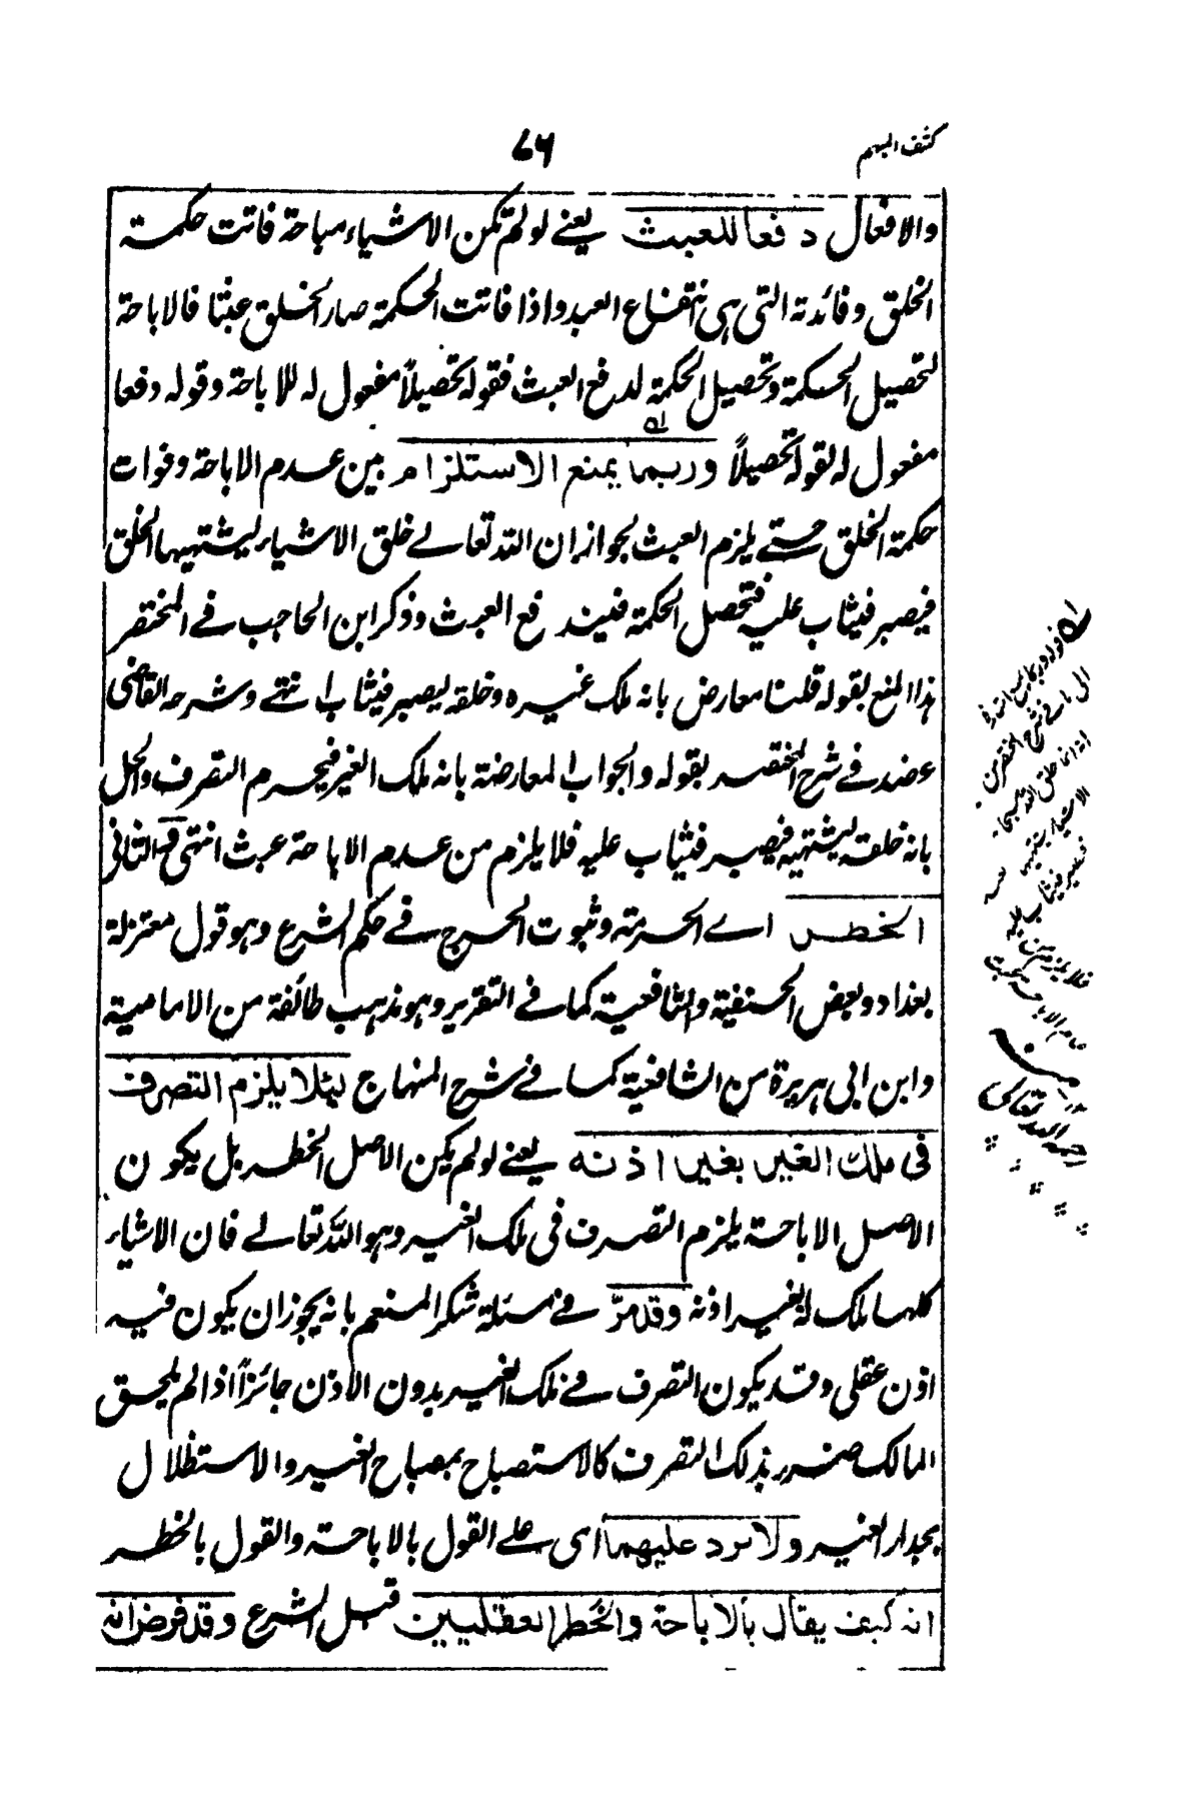 كشف المبهم
٧٦
والافعال دفعا للعبث يعنے لولم تكن الاشياء مباحة فاتت حكمة
الخلق وفائدته التى هى انتفاع العبد واذا فاتت الحكمة صار الخلق عبثا فالاباحة
لتحصيل الحكمة وتحصيل الحكمة لدفع العبث فقوله تحصيلاً مفعول له للاباحة وقوله دفعا
مفعول له لقوله تحصيلاً وربما يمنع الاستلزام بين عدم الاباحة وفوات
حكمة الخلق حتے يلزم العبث لجواز ان الله تعالے خلق الاشياء ليشتهيها الخلق
فيصبر فيثاب عليه فتحصل الحكمة فيندفع العبث وذكر ابن الحاجب فے المختصر
هذا المنع بقوله قلنا معارض بانه ملك غيره وخلقه ليصبر فيثاب انتهے وشرحه القاضى
عضد فے شرح المختصر بقوله والجواب المعارضة بانه ملك الغير فيحرم التصرف والحل
بانه خلقه ليشتهيه فيصبر فيثاب عليه فلا يلزم من عدم الاباحة عبث انتهى والثانى
الخطر اے الحرمة وثبوت الحرج فے حكم الشرع وهو قول معتزلة
بغداد وبعض الحنفية والشافعية كما فے التقرير وهو مذهب طائفة من الامامية
وابن ابى هريرة من الشافعية كما فے شرح المنهاج لئلا يلزم التصرف
فى ملك الغير بغير اذنه يعنے لولم يكن الاصل الخطر بل يكون
الاصل الاباحة يلزم التصرف فى ملك الغير وهو الله تعالے فان الاشياء
كلها ملك له بغير اذنه وقد مرّ فے مسئلة شكر المنعم بانه يجوز ان يكون فيه
اذن عقلى وقد يكون التصرف فے ملك الغير بدون الاذن جائزاً اذا لم يلحق
المالك ضرر بذلك التصرف كالاستصباح بمصباح الغير والاستظلال
بجدار الغير ولا يرد عليهما اى على القول بالاباحة والقول بالخطر
انه كيف يقال بالاباحة والخطر العقليين قبل الشرع وقد فرض انه
فى شرح المختصر
انما خلق الله
الاشياء ليشتهيه
فيصبر فيثاب عليه
فلا يلزم من
عدم الاباحة عبث
منه
رحمه الله تعالى